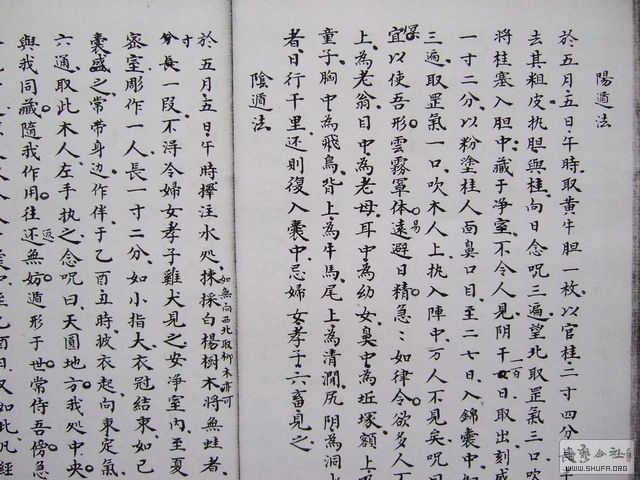 陽遁法
於五月五日午時取黃牛胆一枚以官桂二寸四分
去其粗皮执胆與桂向日念咒三遍望北取罡氣三口吹
將桂塞入胆中藏于淨室不令人見阴干一百日取出刻成
一寸二分以粉塗桂人面鼻口目至二七日入錦囊中如
三遍取罡氣一口吹木人上执入陣中万人不見矣咒曰
宜以使吾形雲霧罩体易遠避日精急：如律令欲多人不
上為老翁目中為老母耳中為幼女鼻中為坵塚額上
童子胸中為飛鳥背上為牛馬尾上為清澗尻阴為洞
者日行千里还則復入囊中忌婦女孝子六畜見之
陰遁法
如無向西北取柳木亦可
於五月五日午時擇注水処揀採白楊樹木將無蛀者
寸分長一段不淂令婦女孝子雞犬見之安淨室內至夏
密室彫作一人長一寸二分如小指大衣冠結束如己
囊盛之常带身边作伴于乙酉丑時披衣起向東定氣
六通取此木人左手执之念咒曰天圆地方我処中央
與我同藏隨我作用往返还無妨遁形于世常侍吾傍急
WWW.SHUFA.ORG